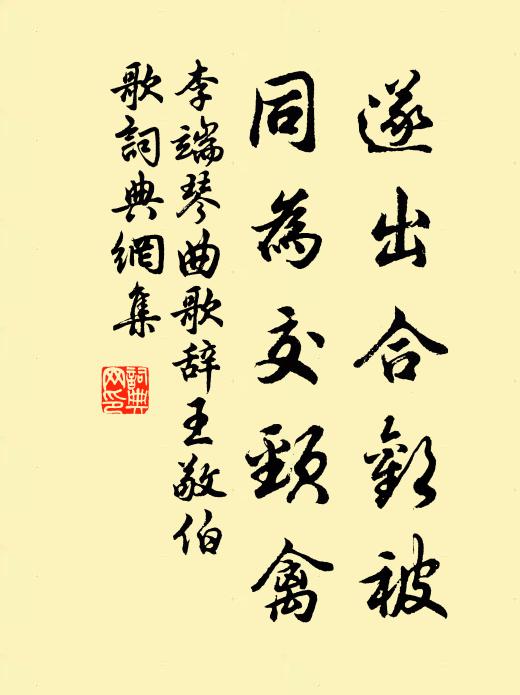 遂出合歡被
同為交頸禽
李端琴曲歌辞王敬伯
歌詞典網集
詞典
网印